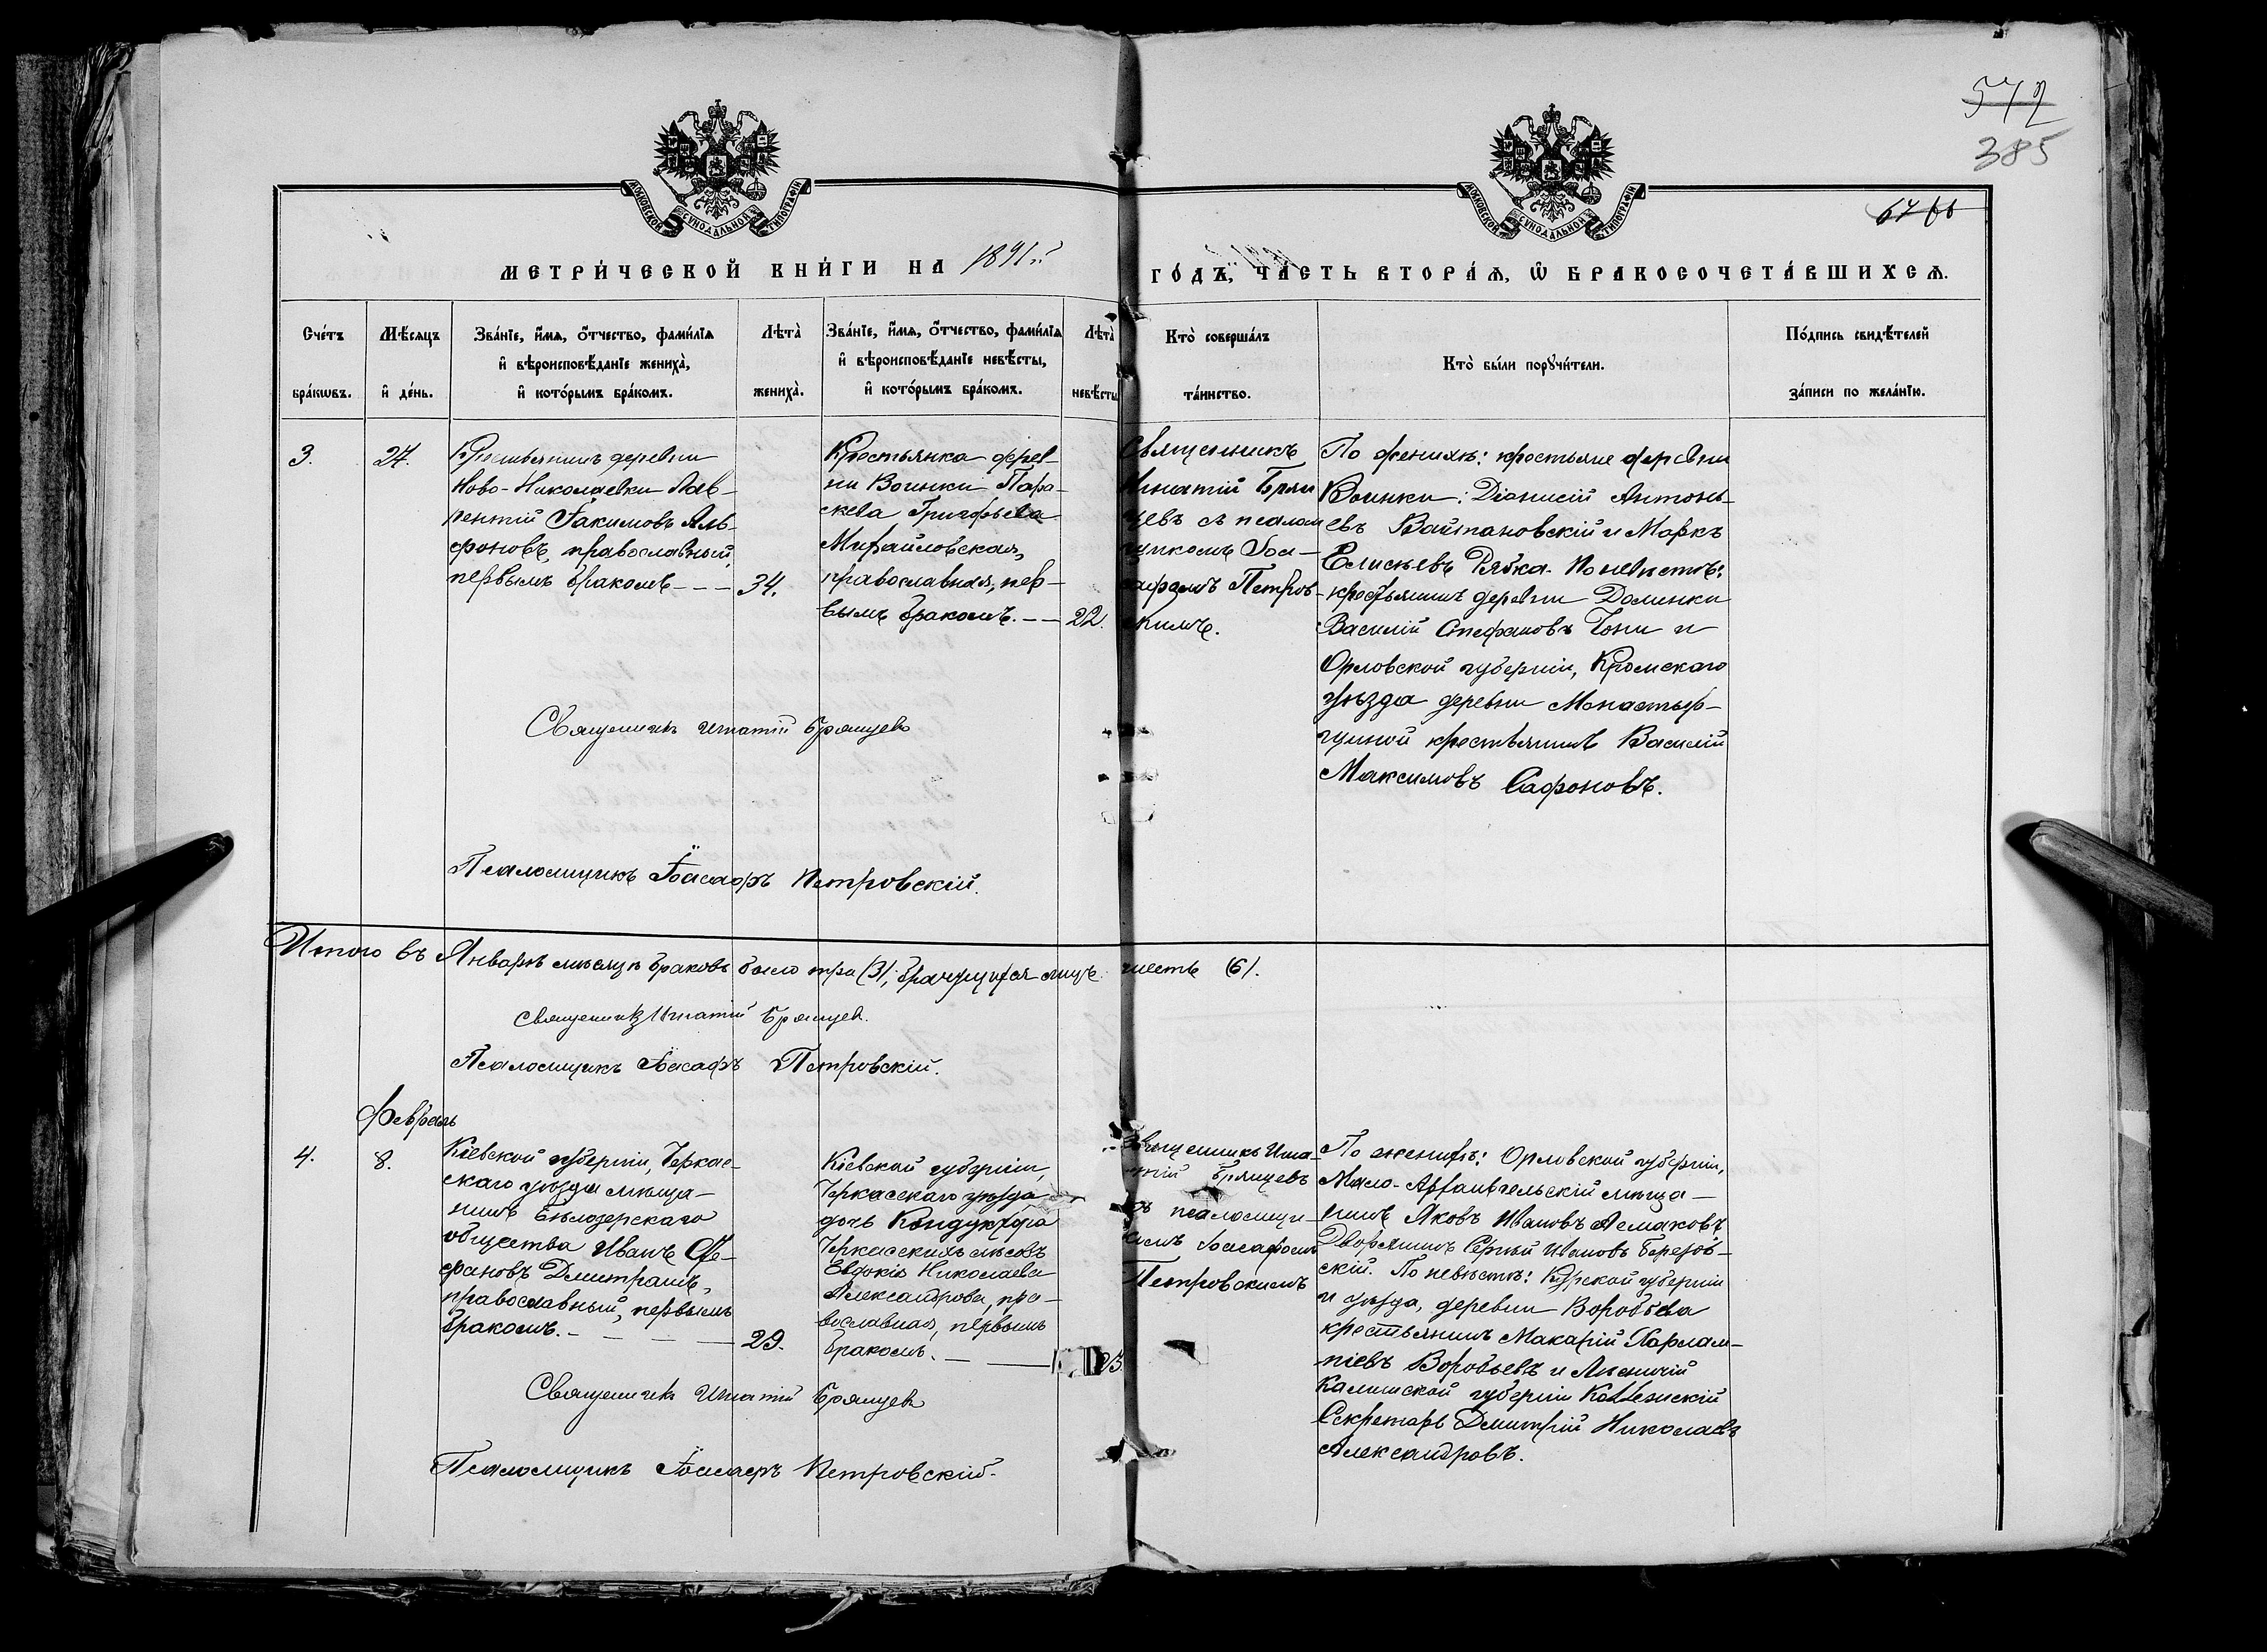 572
385
МОСКОВСКОЙ СѴНОДАЛЬНОЙ ТИПОГРАФІИ
МОСКОВСКОЙ СѴНОДАЛЬНОЙ ТИПОГРАФІИ
МЕТРИ́ЧЕСКОЙ КНИ́ГИ НА 1891
ГО́ДЪ, ЧА́СТЬ ВТОРА́Ѧ, Ѡ҆ БРАКОСОЧЕТА́ВШИХСѦ.
Сче́тъ
бра́кѡвъ.
Мѣ́сяцъ
и҆ де́нь.
Зва́нїе, и҆́мѧ, ѻ҆́тчество, фами́лїѧ
и҆ вѣроисповѣ́данїе жениха̀,
и҆ кото́рымъ бра́комъ.
Лѣта̀
жениха̀.
Зва́нїе, и҆́мѧ, ѻ҆́тчество, фами́лїѧ
и҆ вѣроисповѣ́данїе невѣ́сты,
и҆ кото́рымъ бра́комъ.
Лѣта̀
невѣ́сты
Кто̀ соверша́лъ
та́инство.
Кто̀ бы́ли порꙋчи́тели.
По́дпись свидѣ́телей
за́писи по жела́нїю.
3.
27.
Крестьянинъ деревни
Ново-Николаевки Лав-
рентій Іакимовъ Аль-
фоновъ, православный,
первымъ бракомъ
34.
Крестьянка дерев-
ни Воинки Пара-
скева Григорьева
Михайловская,
православная, пер-
вымъ бракомъ.
22.
Священникъ
Игнатій Брян
цевъ съ псалом
щикомъ Іоа-
сафомъ Петров-
скимъ.
По женихѣ: крестьяне деревни
Воинки: Діонисій Антонь-
евъ Вайтановскій и Маркъ
Елисѣевъ Рябка. По невѣстѣ:
крестьянинъ деревни Долинки
Василій Стефановъ и
Орловской губерніи, Кромскаго
уѣзда деревни Монастыр-
щиной крестьянинъ Василій
Максимовъ Сафоновъ.
Священникъ Игнатій Брянцевъ
Псаломщикъ Іоасафъ Петровскій.
Итого въ Январѣ мѣсяцѣ браковъ было три (3), брачущихся лицъ шесть (6).
Священникъ Игнатій Брянцевъ.
Псаломщикъ Іоасафъ Петровскій.
Февраль
4.
8.
Кіевской губерніи, Черкас-
скаго уѣзда мѣща-
нинъ Бѣлозерскаго
общества Иванъ Сте-
фановъ Дмитрашъ,
православный, первымъ
бракомъ.
29.
Кіевской губерніи,
Черкасскаго уѣзда
дочь Кондуктора
Черкасскихъ лѣсовъ
Евдокія Николаева
Александрова, пра-
вославная, первымъ
бракомъ.
23
Священникъ Игна-
тій Брянцевъ
съ псаломщи-
комъ Іоасафомъ
Петровскимъ
По женихѣ: Орловской губерніи,
Мало-Архангельскій мѣща-
нинъ Яковъ Ивановъ Асмаковъ,
Дворянинъ Сергѣй Ивановъ Березов-
скій. По невѣстѣ: Курской губерніи
и уѣзда, деревни Воробьева
крестьянинъ Макарій Харлам-
піевъ Воробьевъ и Лѣсничій
Калишской губерніи Коллежскій
Секретарь Дмитрій Николаевъ
Александровъ.
Священникъ Игнатій Брянцевъ
Псаломщикъ Іоасафъ Петровскій.